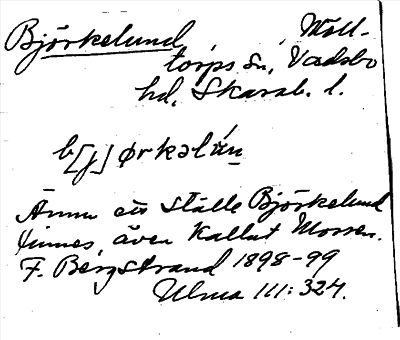 Björkelund, Moll-
torps sn, Vadsbo
hd, Skarab. l.
b[j]ørkəlún
Ännu ett ställe Björkelund
finnes, även kallat Mossen.
F. Bergstrand 1898-99
Ulma 111: 324.